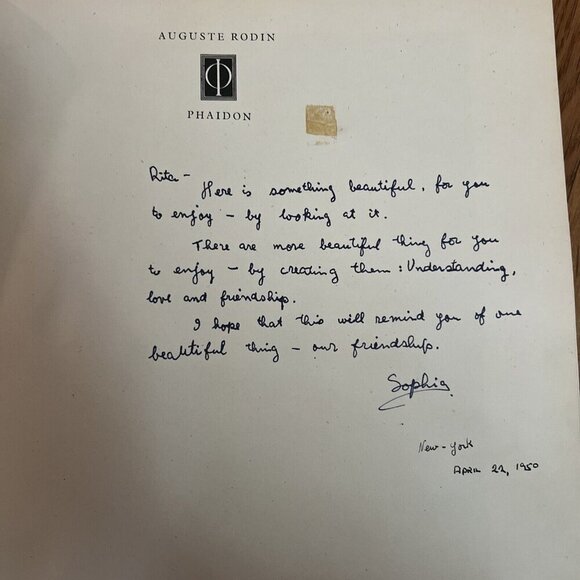 AUGUSTE RODIN
Φ
PHAIDON
Rita -
Here is something beautiful, for you
to enjoy - by looking at it.
There are more beautiful thing for you
to enjoy - by creating them: Understanding,
love and friendship.
I hope that this will remind you of one
beautiful thing - our friendship.
Sophia
New-York
APRIL 22, 1950